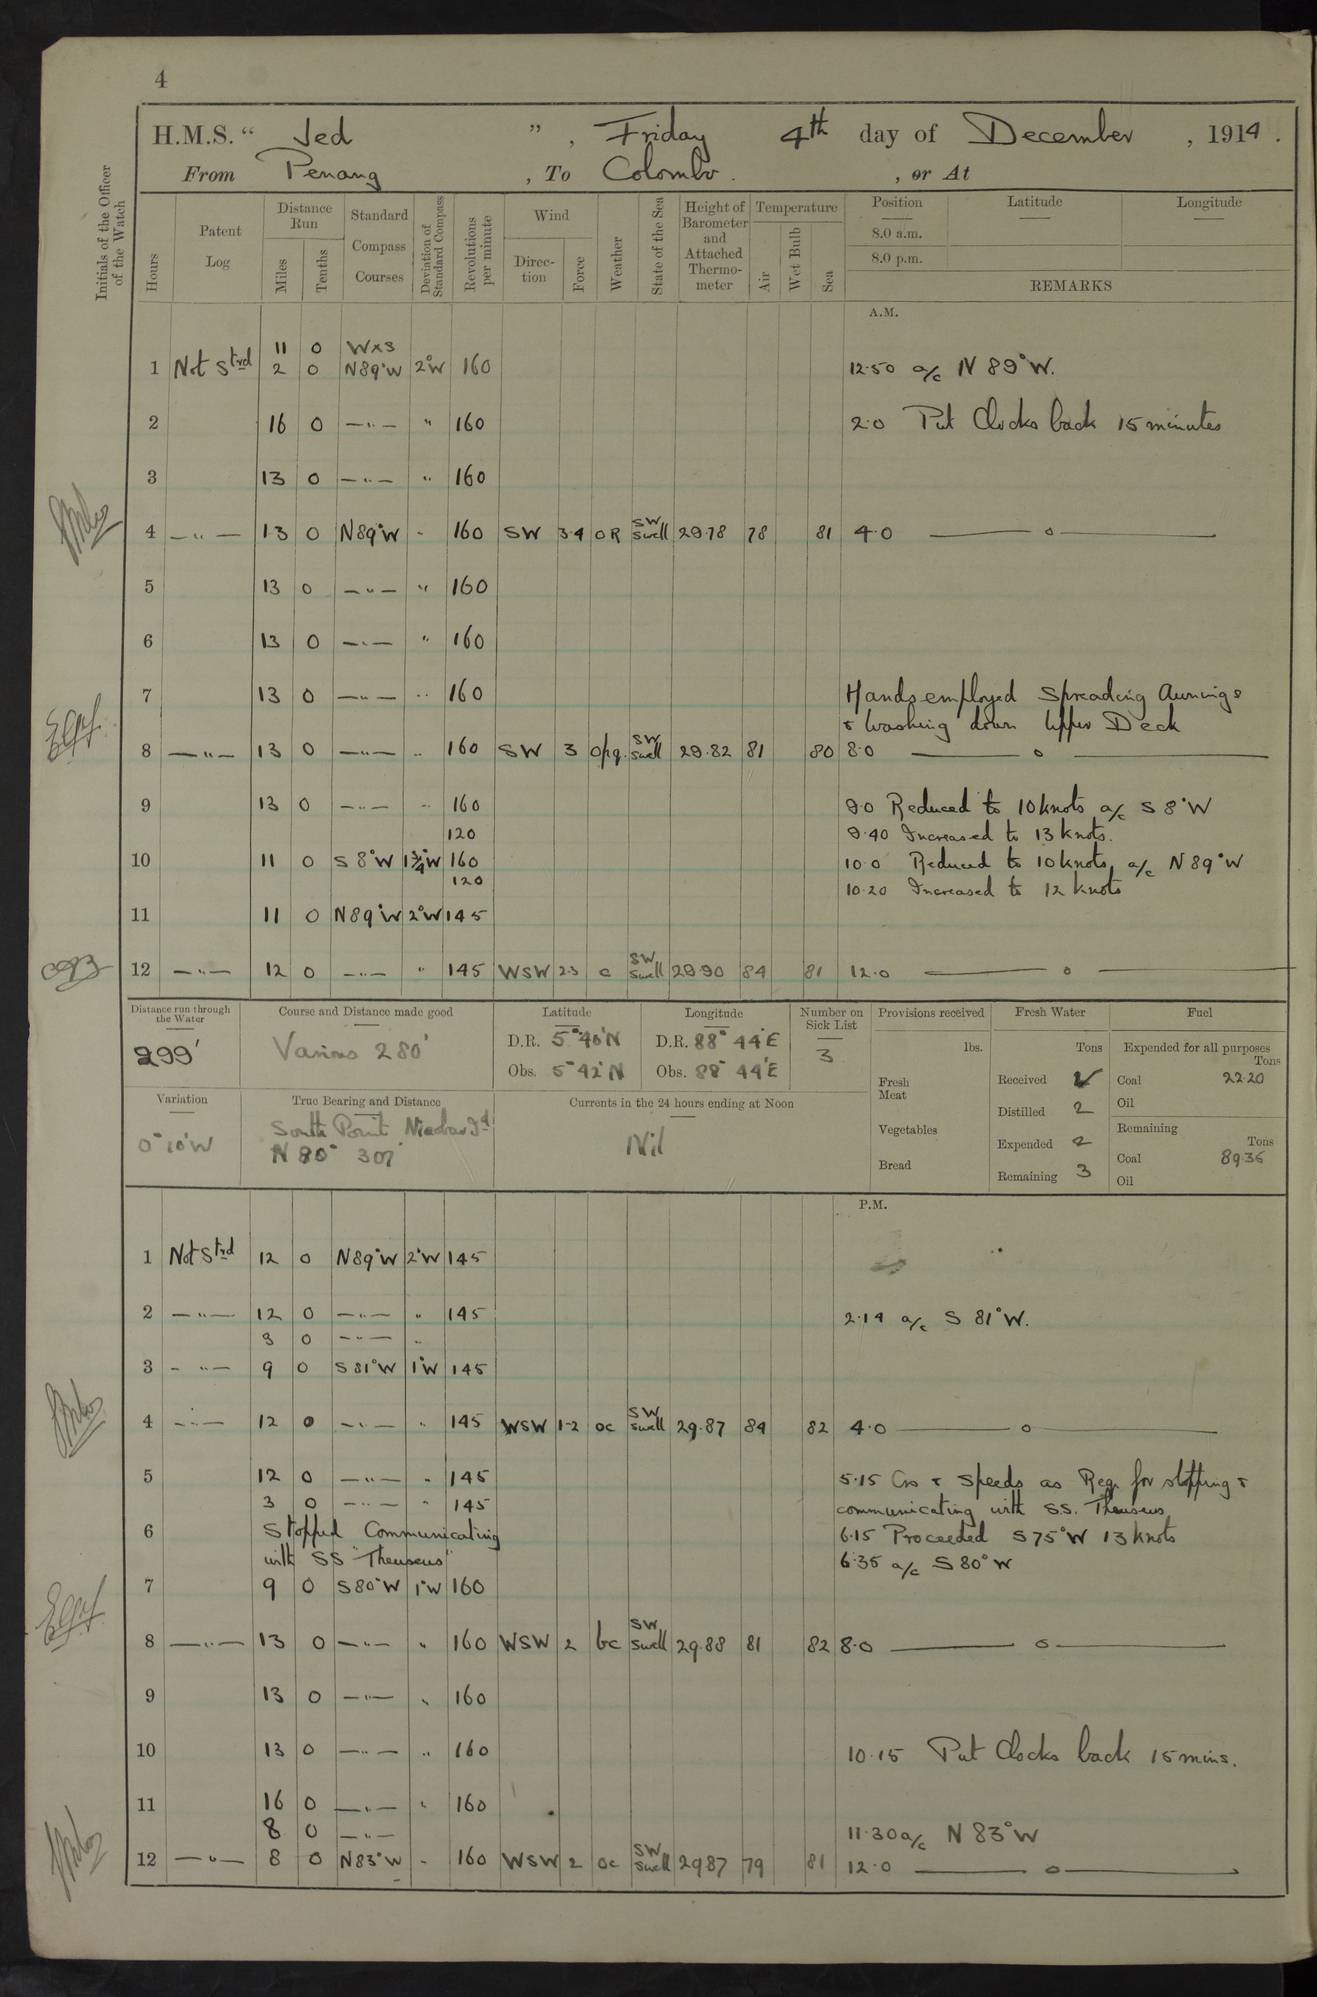 4
H.M.S. " Jed ", Friday 4th day of December, 1914.
From Penang, To Colombo., or At
Initials of the Officer of the Watch
Hours
Patent Log
Distance Run
Miles
Tenths
Standard Compass Courses
Deviation of Standard Compass
Revolutions per minute
Wind
Direction
Force
Weather
State of the Sea
Height of Barometer and Attached Thermometer
Temperature
Air
Wet Bulb
Sea
Position
8.0 a.m.
8.0 p.m.
Latitude
Longitude
REMARKS
A.M.
11 0 WxS
1 Not Strd 2 0 N89°W 2°W 160 12.50 a/c N 89°W.
2 16 0 —"— " 160 2.0 Put Clocks back 15 minutes
3 13 0 —"— " 160
4 —"— 13 0 N89°W " 160 SW 3.4 OR SW swell 29.78 78 81 4.0 ——o——
5 13 0 —"— " 160
6 13 0 —"— " 160
7 13 0 —"— " 160 Hands employed Spreading Awnings
& Washing down Upper Deck
8 —"— 13 0 —"— " 160 SW 3 opq. SW swell 29.82 81 80 8.0 ——o——
9 13 0 —"— " 160 9.0 Reduced to 10 knots a/c S 8°W
120 9.40 Increased to 13 knots.
10 11 0 S 8°W 1¾°W 160 10.0 Reduced to 10 knots, a/c N 89°W
120 10.20 Increased to 12 knots
11 11 0 N89°W 2°W 145
12 —"— 12 0 —"— " 145 WSW 2.3 c SW swell 29.90 84 81 12.0 ——o——
Distance run through the Water
299'
Course and Distance made good
Various 280'
Latitude
D.R. 5°40'N
Obs. 5°42'N
Longitude
D.R. 88° 44'E
Obs. 88° 44'E
Number on Sick List
3
Provisions received
lbs.
Fresh Meat
Vegetables
Bread
Fresh Water
Tons
Received
Distilled 2
Expended 2
Remaining 3
Fuel
Expended for all purposes
Tons
Coal 22.20
Oil
Remaining
Tons
Coal 89.36
Oil
Variation
0°10'W
True Bearing and Distance
South Point Nicobar Id
N 80° 307'
Currents in the 24 hours ending at Noon
Nil
P.M.
1 Not Strd 12 0 N89°W 2°W 145
2 —"— 12 0 —"— " 145 2.14 a/c S 81°W.
3 0 —"— "
3 —"— 9 0 S81°W 1°W 145
4 —"— 12 0 —"— " 145 WSW 1-2 oc SW swell 29.87 84 82 4.0 ——o——
5 12 0 —"— " 145 5.15 Cos & Speeds as Req. for stopping &
3 0 —"— " 145 communicating with S.S. Theuseus
6 Stopped Communicating 6.15 Proceeded S75°W 13 knots
with SS "Theuseus" 6.35 a/c S 80°W
7 9 0 S80°W 1°W 160
8 —"— 13 0 —"— " 160 WSW 2 bc SW swell 29.88 81 82 8.0 ——o——
9 13 0 —"— " 160
10 13 0 —"— " 160 10.15 Put Clocks back 15 mins.
11 16 0 —"— " 160
8 0 —"— 11.30 a/c N 83°W
12 —"— 8 0 N83°W " 160 WSW 2 oc SW swell 2987 79 81 12.0 ——o——